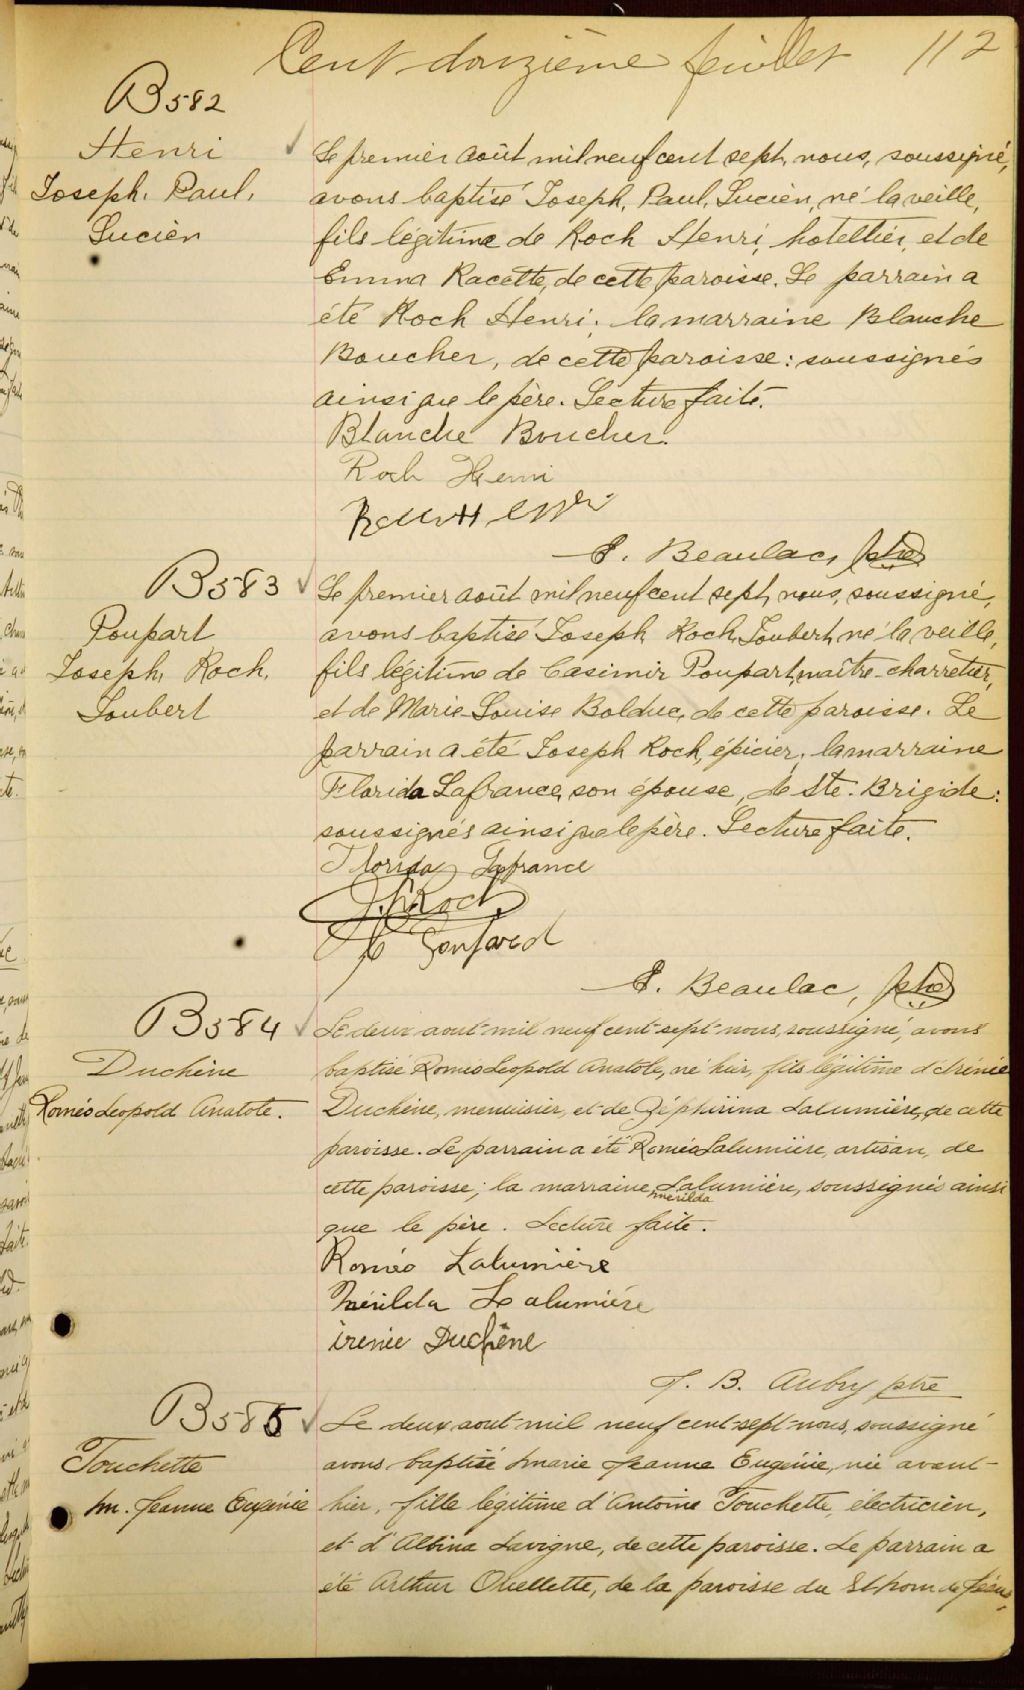 Cent douzième feuillet 112
B582
Henri
Joseph, Paul,
Lucien
Le premier août mil neuf cent sept, nous, soussigné,
avons baptisé Joseph, Paul, Lucien, né la veille,
fils légitime de Roch Henri, hotellier, et de
Emma Racette, de cette paroisse. Le parrain a
été Roch Henri, la marraine Blanche
Boucher, de cette paroisse: soussignés
ainsi que le père. Lecture faite.
Blanche Boucher.
Roch Henri
E. Beaulac, ptre
B583
Poupart
Joseph, Roch,
Joubert
Le premier août mil neuf cent sept, nous, soussigné,
avons baptisé Joseph Roch, Joubert, né la veille,
fils légitime de Casimir Poupart, maître-charretier,
et de Marie-Louise Bolduc, de cette paroisse. Le
parrain a été Joseph Roch, épicier, la marraine
Florida Lafrance, son épouse, de Ste. Brigide:
soussignés ainsi que le père. Lecture faite.
Florida Lafrance
J. Roch
E. Beaulac, ptre
B584
Duchêne
Roméo Leopold Anatole.
Le deux aout mil neuf cent sept nous, soussigné, avons
baptisé Roméo Leopold Anatole, né hier, fils légitime d'Irénée
Duchêne, menuisier, et de Zéphirina Lalumière, de cette
paroisse. Le parrain a été Roméo Lalumière, artisan, de
cette paroisse; la marraine Mérilda Lalumière, soussignés ainsi
que le père. Lecture faite.
Roméo Lalumière
Mérilda Lalumiére
irenée Duchêne
J. B. Aubry ptre
B585
Touchette
M. Jeanne Eugénie
Le deux aout mil neuf cent sept nous, soussigné
avons baptisé Marie Jeanne Eugénie, née avant-
hier, fille légitime d'Antoine Touchette, électricien,
et d'Albina Lavigne, de cette paroisse. Le parrain a
été Arthur Ouellette, de la paroisse du St Nom de Jésus,